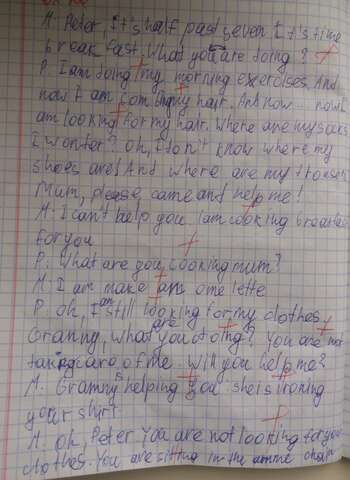 M. Peter, It's half past seven It's time
break fast. What you are doing?
P. I am doing my morning exercises. And
now I am combing my hair. And now... now I
am looking for my hair. Where are my socks
I wonter? Oh, I don't know where my
shoes are! And where are my
Mum, please, came and help me!
M: I can't help you I am cooking breakfas
for you
P: What are you cooking mum?
M: I am make am ome lette
P. Oh, I am still looking for my clothes
Granny, what are you doing? You are not
taking care of me. Will you help me?
M. Granny is helping you she is ironing
your shirt.
M. Oh, Peter You are not looking for your
clothes. You are sitting in the chair